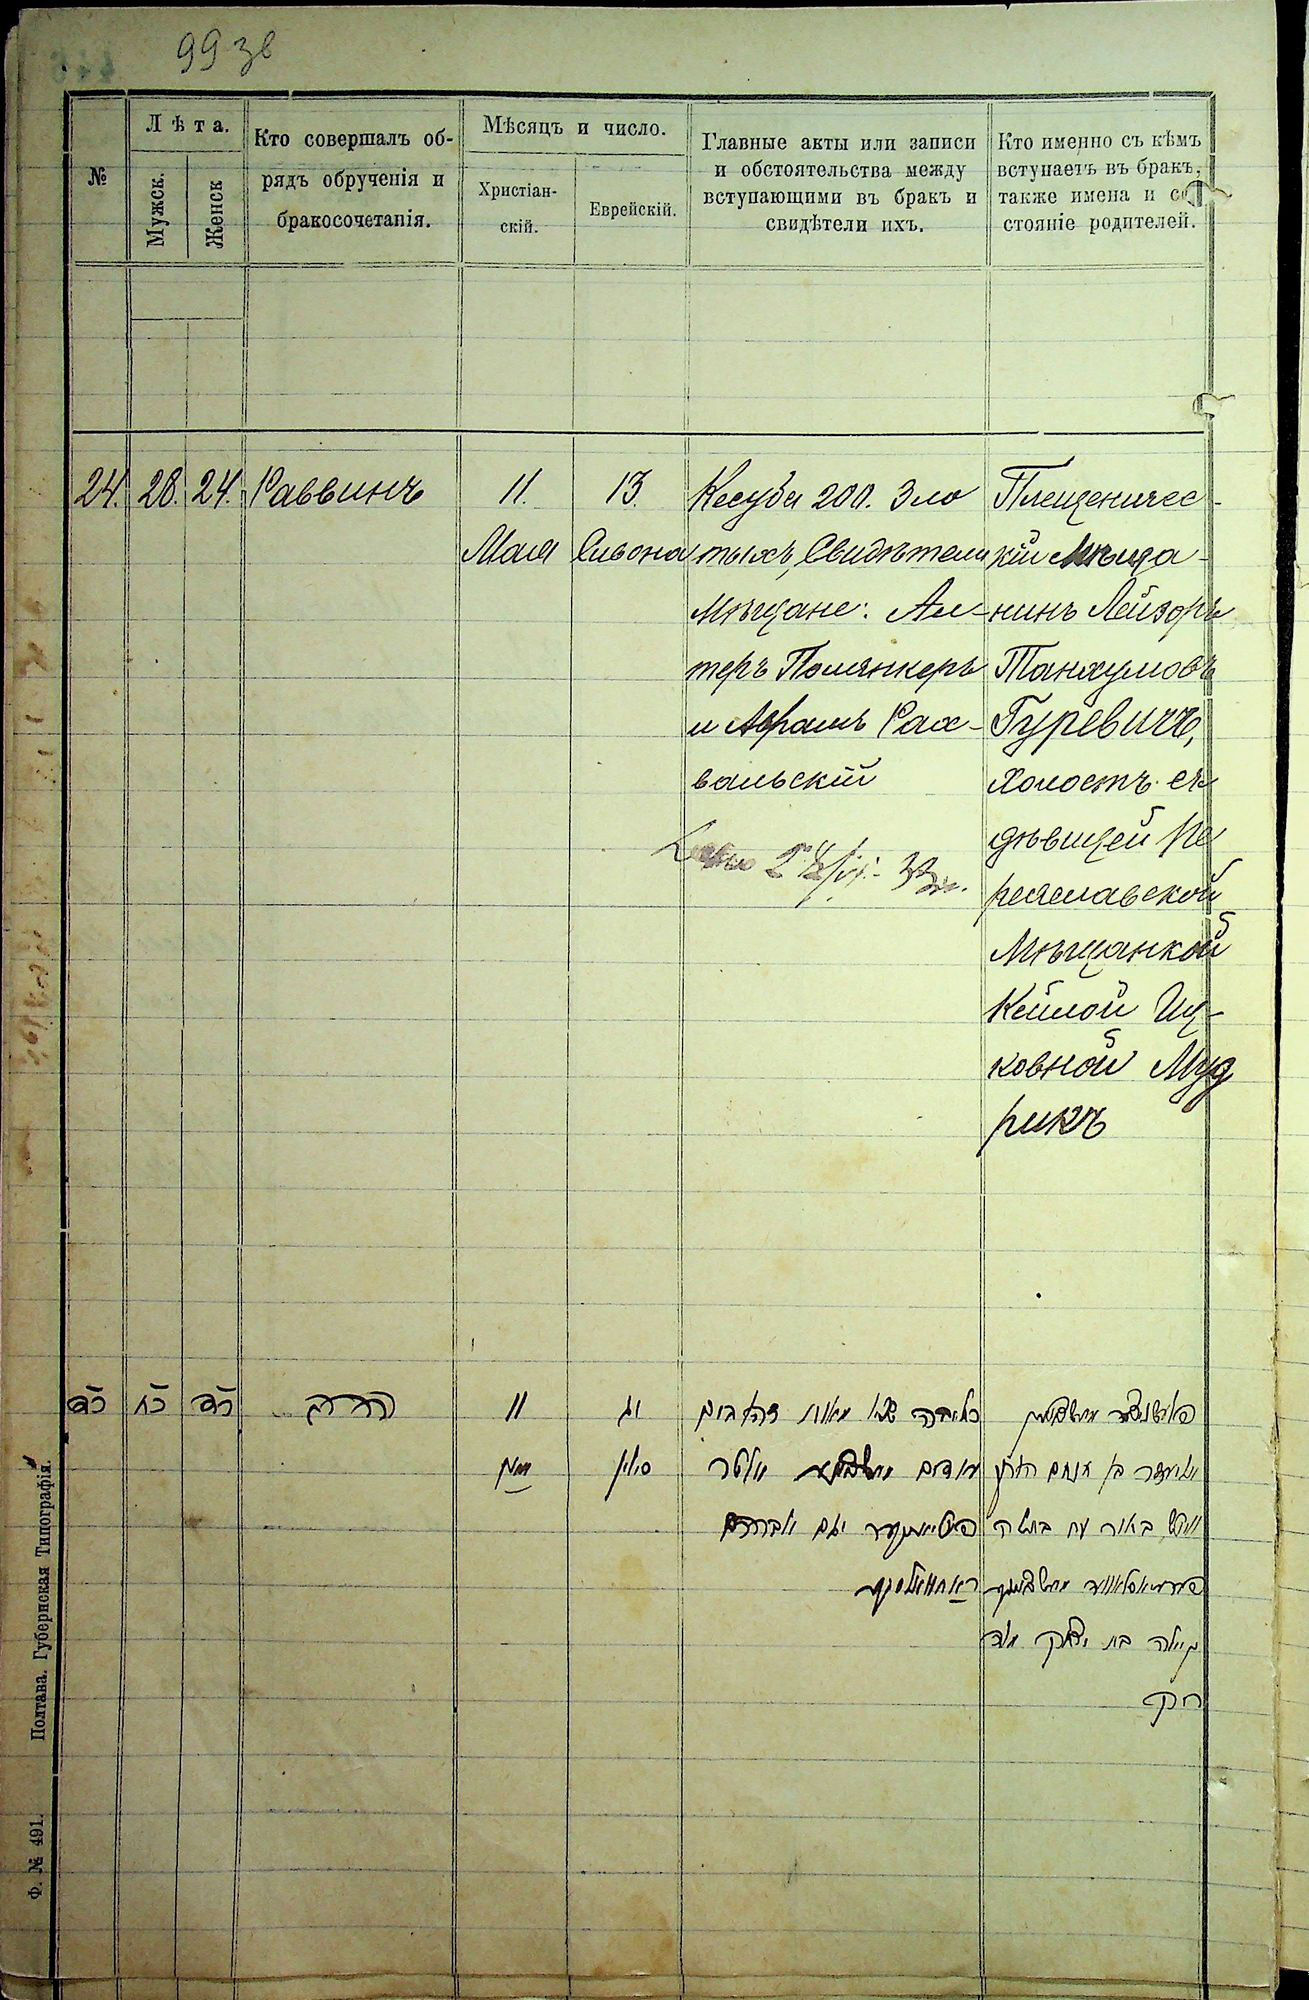 99 зв
№
Лѣта.
Мужск.
Женск
Кто совершалъ об-
рядъ обрученія и
бракосочетанія.
Мѣсяцъ и число.
Христіан-
скій.
Еврейскій.
Главные акты или записи
и обстоятельства между
вступающими въ бракъ и
свидѣтели ихъ.
Кто именно съ кѣмъ
вступаетъ въ бракъ,
также имена и со-
стояніе родителей.
24.
28.
24.
Раввинъ
11.
Мая
13.
Сивона
Кесуба 200. Зло
тыхъ, Свидѣтели
Мѣщане: Ал-
теръ Полянкеръ
и Абрамъ Рах-
вальскій
Плещеничес-
кій Мѣща-
нинъ Лейзоръ
Танхумовъ
Гуревичъ,
холостъ съ
дѣвицей Пе
реяславской
Мѣщанкой
Кейлой Иц-
ковной Муд
рикъ
כד
כח
כד
הרב
11
מאי
יג
סיון
כתובה מאות זהובים
עדים אלטר
אברהם
בן תנחום
עם בתולה
קיילה בת יצחק מוד
ריק
Полтава. Губернская Типографія.
Ф. № 491.